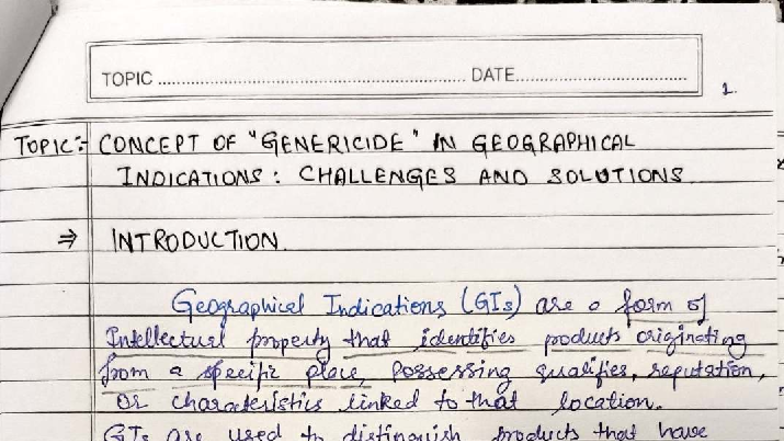 TOPIC ........................ DATE........................
1.
TOPIC:- CONCEPT OF "GENERICIDE" IN GEOGRAPHICAL
INDICATIONS: CHALLENGES AND SOLUTIONS
⇒ INTRODUCTION.
Geographical Indications (GIs) are a form of
Intellectual property that identifies products originating
from a specific place, possessing qualities, reputation,
or characteristics linked to that location.
GIs are used to distinguish products that have